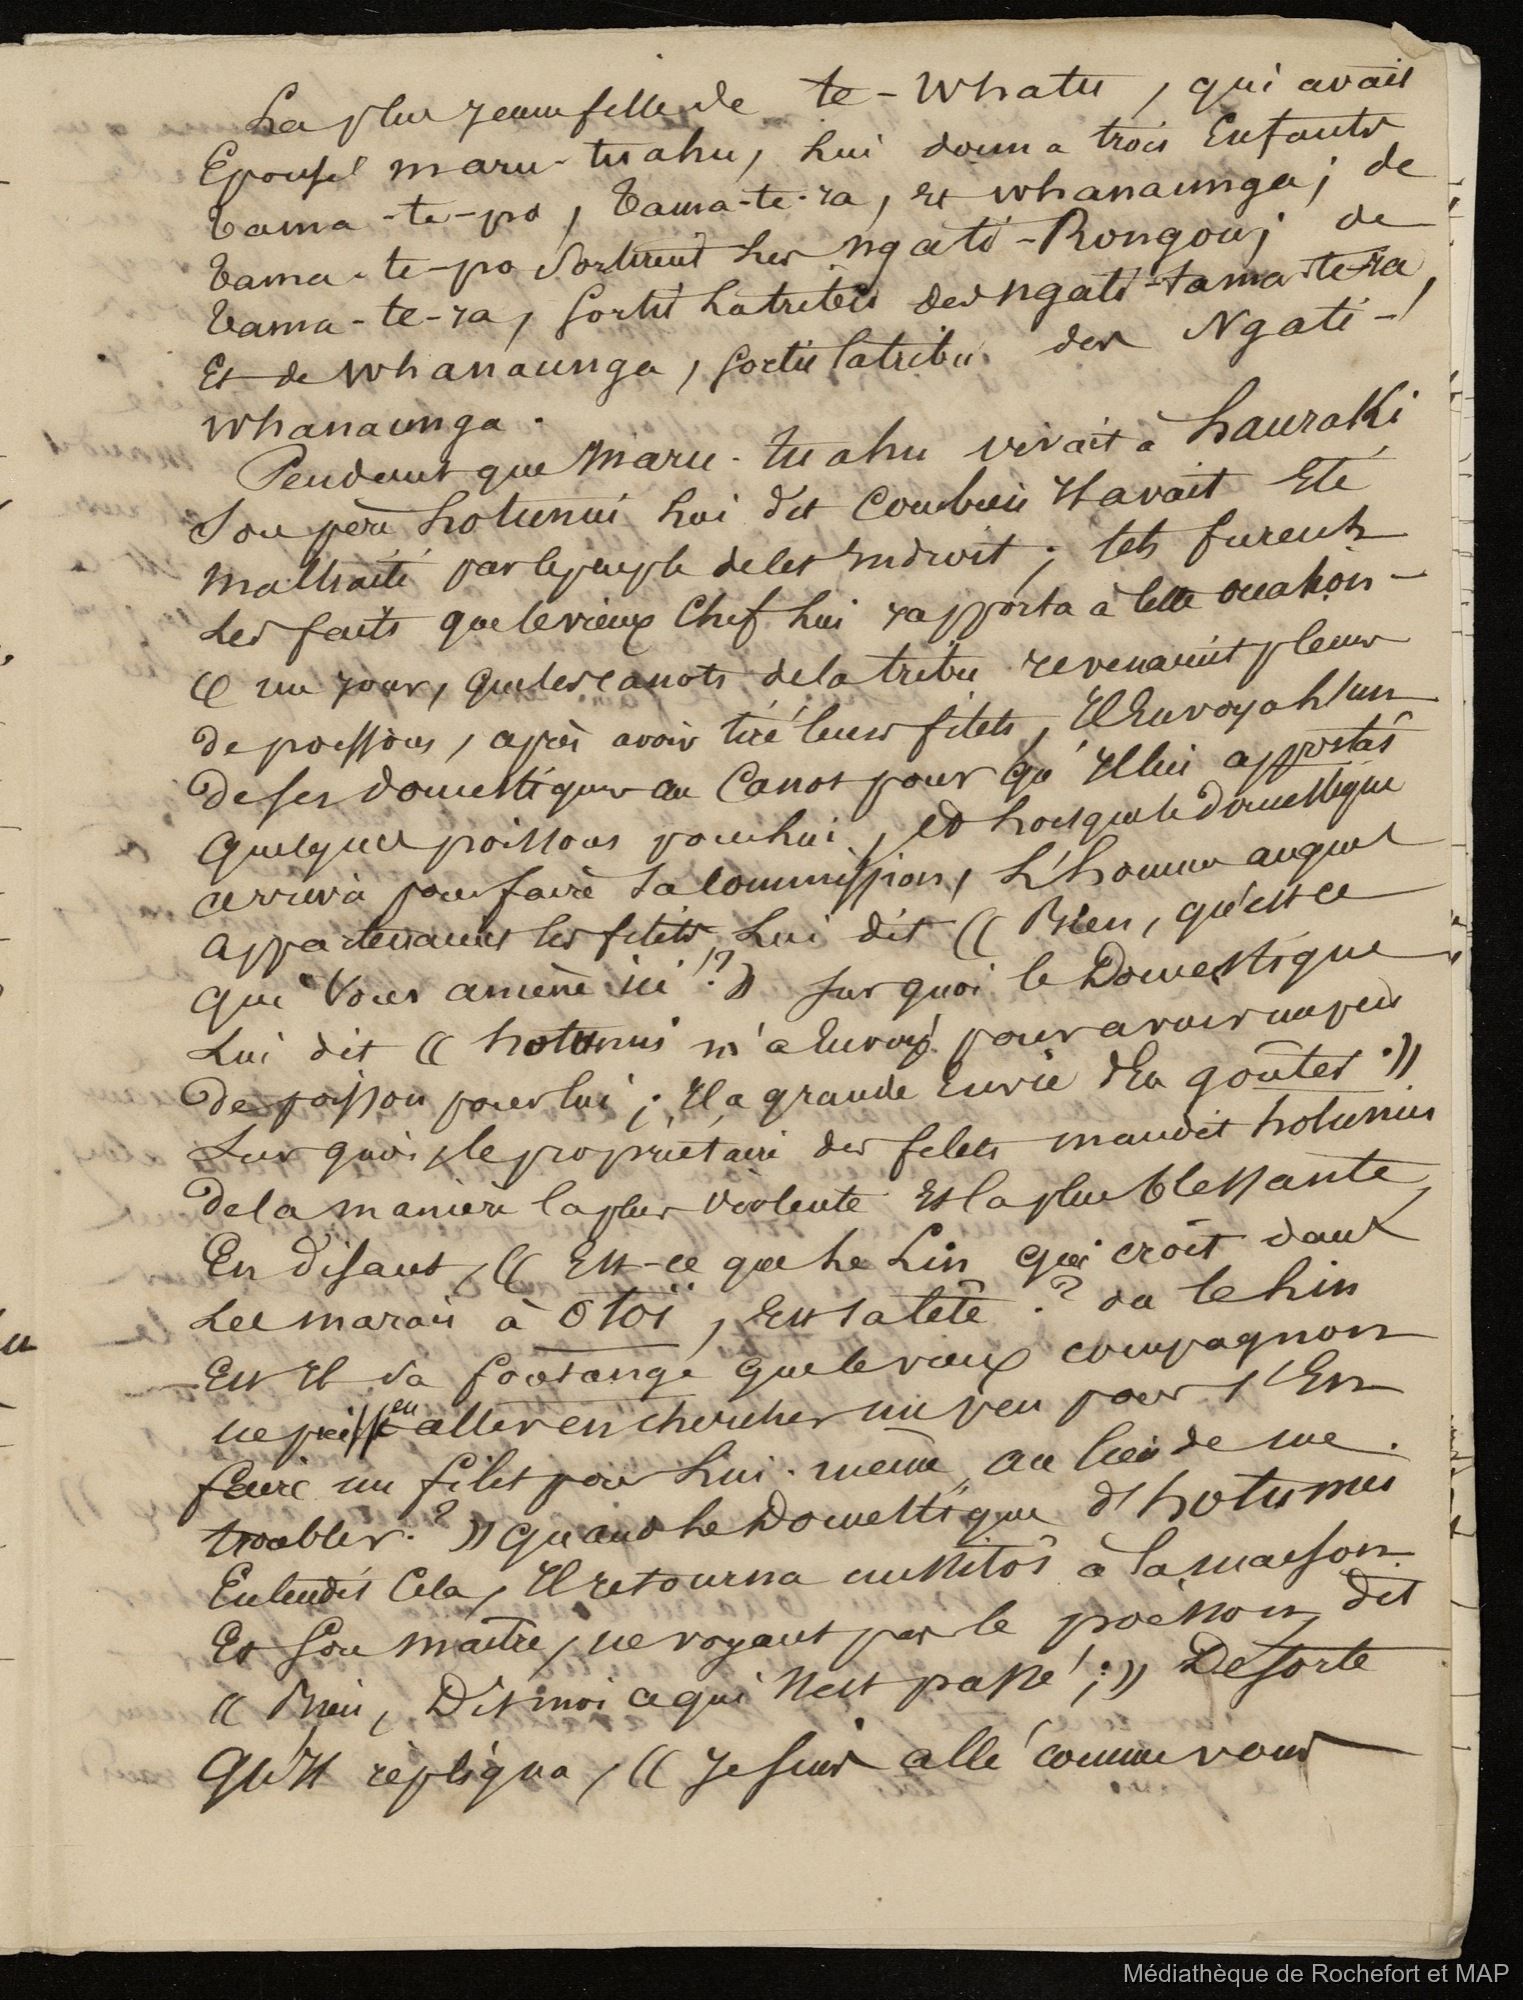 La plus jeune fille de te-Whatu, qui avait
Epousé maru-tuahu, lui donna trois Enfants
Tama-te-po, Tama-te-ra, et whanaunga; de
Tama-te-po sortirent les ngati-Rongou; de
Tama-te-ra, sortit la tribu des ngati-tama-te-ra,
Et de whanaunga, sortit la tribu des Ngati-
whanaunga.
Pendant que Maru-tuahu vivait à hauraki
Son père hotunui lui dit combien il avait Eté
Maltraité par le peuple de cet Endroit; tels furent
les faits que le vieux Chef lui rapporta à cette occasion-
(( un jour, que les canots de la tribu revenaient pleins
de poissons, après avoir tiré leurs filets, Il Envoya l'un
de ses domestiques au Canot pour qu'Il lui apportât
quelques poissons pour lui, Et lorsque le domestique
arriva pour faire sa commission, L'homme auquel
appartenaient les filets, lui dit (( Bien, qu'est ce
qui vous amène ici !? )) sur quoi le Domestique
Lui dit (( hotunui m'a Envoyé pour avoir un peu
de poisson pour lui; Il a grande Envie d'En goûter. ))
Sur quoi, le propriétaire des filets maudit hotunui
de la manière la plus violente Et la plus blessante,
En disant, (( Est-ce que le Lin qui croît dans
les marais à Otoï, Est sa tête? ou le lin
Est Il sa que le vieux compagnon
ne puisse en aller en chercher un peu pour s'En
faire un filet pour lui-même, au lieu de me
troubler? )) quand le Domestique d'hotunui
Entendit Cela, Il retourna aussitôt à la maison
Et son maître, ne voyant pas le poisson, dit
(( Bien, Dis moi ce qui s'est passé; )) De sorte
qu'Il répliqua, (( Je suis allé comme vous
Médiathèque de Rochefort et MAP